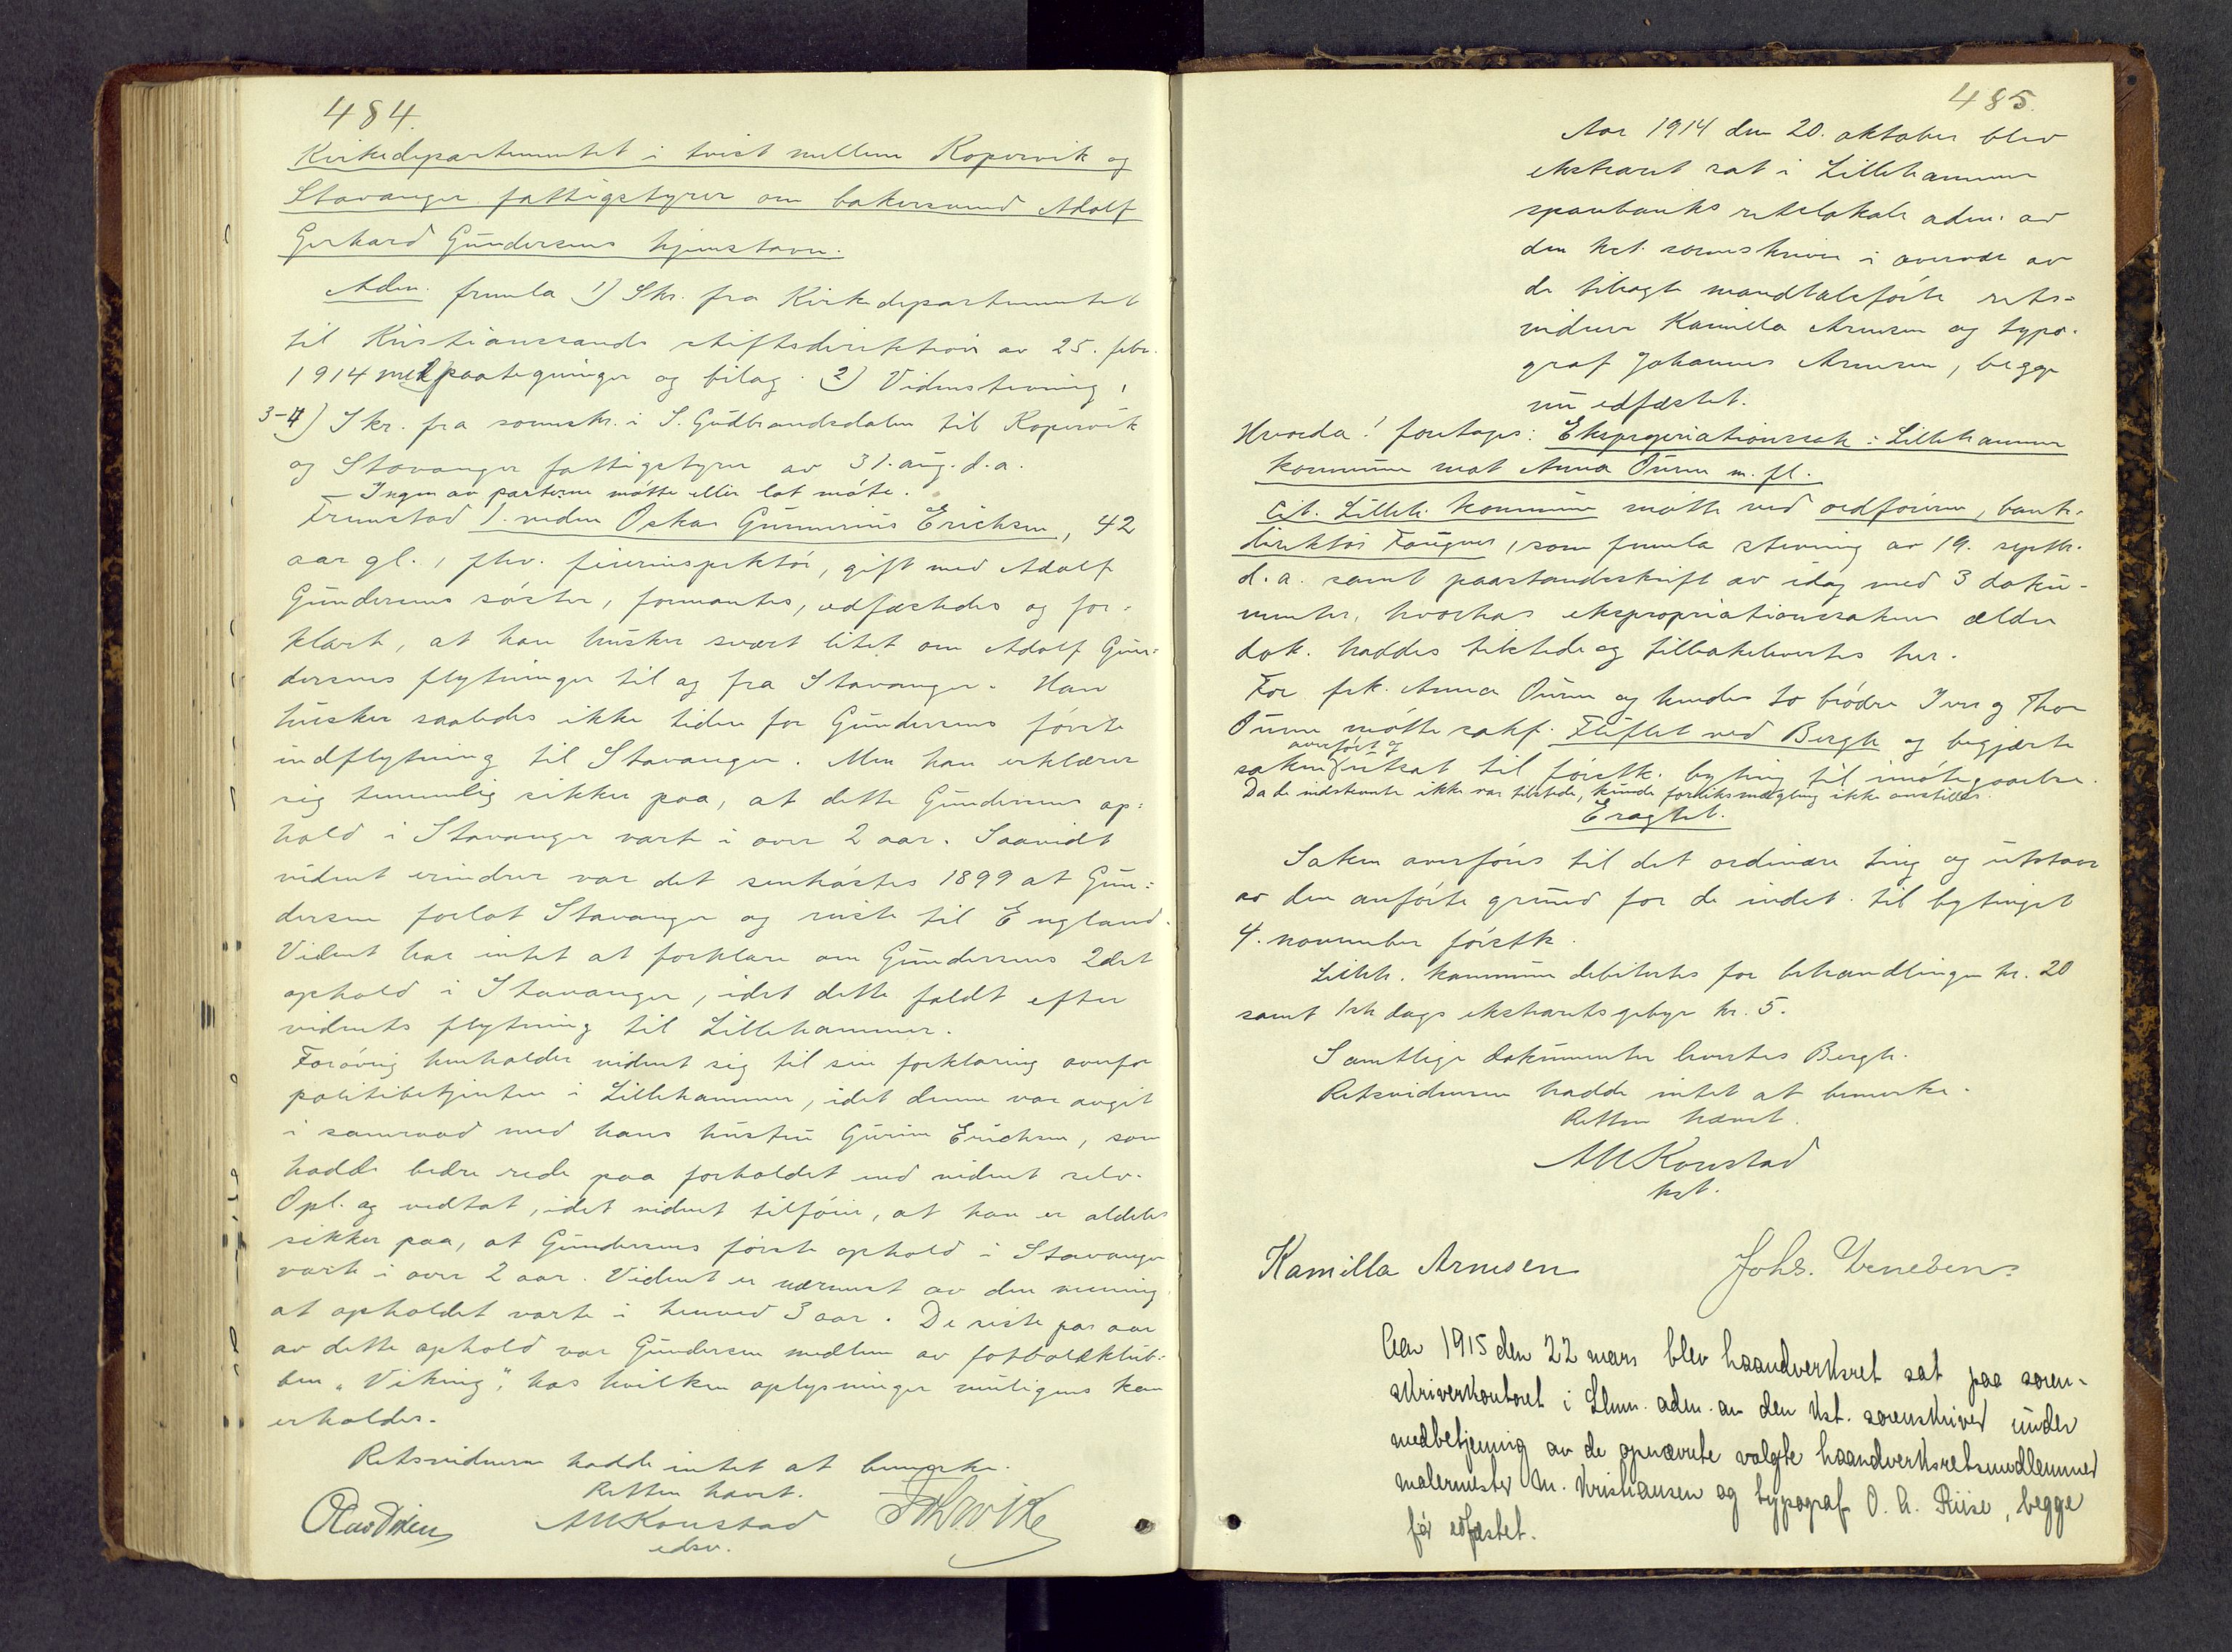 484.
Kirkedepartementet i tvist mellem Kopervik og
Stavanger fattigstyrer om bakersvend Adolf
Gerhard Gundersens hjemstavn.
Adm. fremla 1) Skr. fra Kirkedepartementet
til Kristianssands stiftsdirektion av 25. febr.
1914 med paategninger og bilag. 2) Vidnestevning,
3-4) Skr. fra sorenskr. i S. Gudbrandsdalen til Kopervik
og Stavanger fattigstyrer av 31. aug. d.a.
- Ingen av parterne møtte eller lot møte.
Fremstod 1. vidne Oskar Gunnerius Erichsen, 42
aar gl., fhv. feierinspektør, gift med Adolf
Gundersens søster, formantes, edfæstedes og for-
klarte, at han husker svært litet om Adolf Gun-
dersens flytninger til og fra Stavanger. Han
husker saaledes ikke tiden for Gundersens første
indflytning til Stavanger. Men han erklærer
sig temmelig sikker paa, at dette Gundersens op-
hold i Stavanger varte i over 2 aar. Saavidt
vidnet erindrer var det senhøstes 1899 at Gun-
dersen forlot Stavanger og reiste til England.
Vidnet har intet at forklare om Gundersens 2det
ophold i Stavanger, idet dette faldt efter
vidnets flytning til Lillehammer.
Forøvrig henholder vidnet sig til sin forklaring overfor
politibetjenten i Lillehammer, idet denne var avgit
i samraad med hans hustru Gurine Erichsen, som
hadde bedre rede paa forholdet end vidnet selv.
Opl. og vedtat, idet vidnet tilføier, at han er aldeles
sikker paa, at Gundersens første ophold i Stavanger
varte i over 2 aar. Vidnet er nærmest av den mening
at opholdet varte i henved 3 aar. De siste par aar
av dette ophold var Gundersen medlem av fotboldklub-
ben "Viking", hos hvilken oplysninger muligens kan
erholdes.
Retsvidnerne hadde intet at bemerke.
Retten hævet.
AMKonstad
edsv.
485.
Aar 1914 den 20. oktober blev
ekstraret sat i Lillehammer
sparebanks retslokale adm. av
den kst. sorenskriver i overvær av
de tilsagte mandtalsførte rets-
vidner Kamilla Arnesen og typo-
graf Johannes Arnesen, begge
nu edfæstet.
Hvorda! foretages: Ekspropriationssak: Lillehammer
kommune mot Anna Ouren m. fl.
Cit. Lilleh. kommune møtte ved ordføreren, bank-
direktør Fougner, som fremla stevning av 19. septbr.
d.a. samt paastandsskrift av idag med 3 doku-
menter, hvorhos ekspropriationssakens ældre
dok. haddes tilstede og tilbakelevertes her.
For frk. Anna Ouren og hendes to brødre Iver og Thor
Ouren møtte sakf. Fliflet ved Bergh og begjærte
overført og
saken utsat til førstk. byting til imøtegaaelse.
Da de indstevnte ikke var tilstede, kunde forliksmægling ikke anstilles.
Eragtet.
Saken overføres til det ordinære ting og utstaar
av den anførte grund for de indst. til bytinget
4. november førstk.
Lilleh. kommune debitertes for behandlingen kr. 20
samt 1ste dags ekstraretsgebyr kr. 5.
Samtlige dokumenter levertes Bergh.
Retsvidnerne hadde intet at bemerke.
Retten hævet.
AMKonstad
kst.
Kamilla Arnesen Johs. Arnesen.
Aar 1915 den 22 mars blev haandverksret sat paa soren-
skriverkontoret i Lhmr. adm. av den kst. sorenskriver under
medbetjening av de opnævnte valgte haandverksretsmedlemmer
malermester M. Kristiansen og typograf O. A. Riise, begge
før edfæstet.